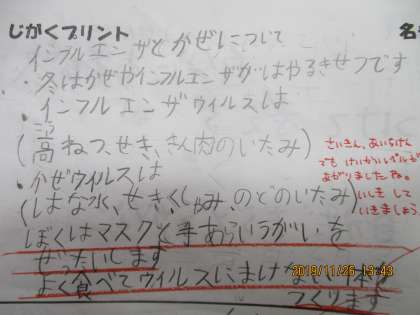 じがくプリント
名
インフルエンザとかぜについて
・冬はかぜやインフルエンザがはやるきせつです
・インフルエンザウイルスは
(高ねつ、せき、きん肉のいたみ)
・かぜウイルスは
(はな水、せき、くしゃみ、のどのいたみ)
ぼくはマスクと手あらいうがいを
ぜったいします
よく食べてウイルスにまけない体を
つくります
さいきん、あいちけん
でもけいかいレベルが
あがりましたね。
いしきして
いきましょう
2019/11/26 13:43